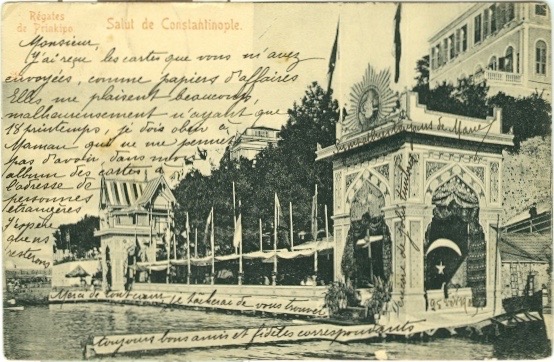 Régates
de Prinkipo
Salut de Constantinople.
Monsieur,
J'ai reçu les cartes que vous m'avez
envoyées, comme papiers d'affaires
Elles me plaisent beaucoup,
malheureusement n'ayant que
18 printemps, je dois obéir à
Maman qui ne me permet
pas d'avoir dans mon
album des cartes à
l'adresse de
personnes
étrangères
J'espère
que ns
resterons
Merci de tout cœur, je tâcherai de vous trouver
toujours bons amis et fidèles correspondants